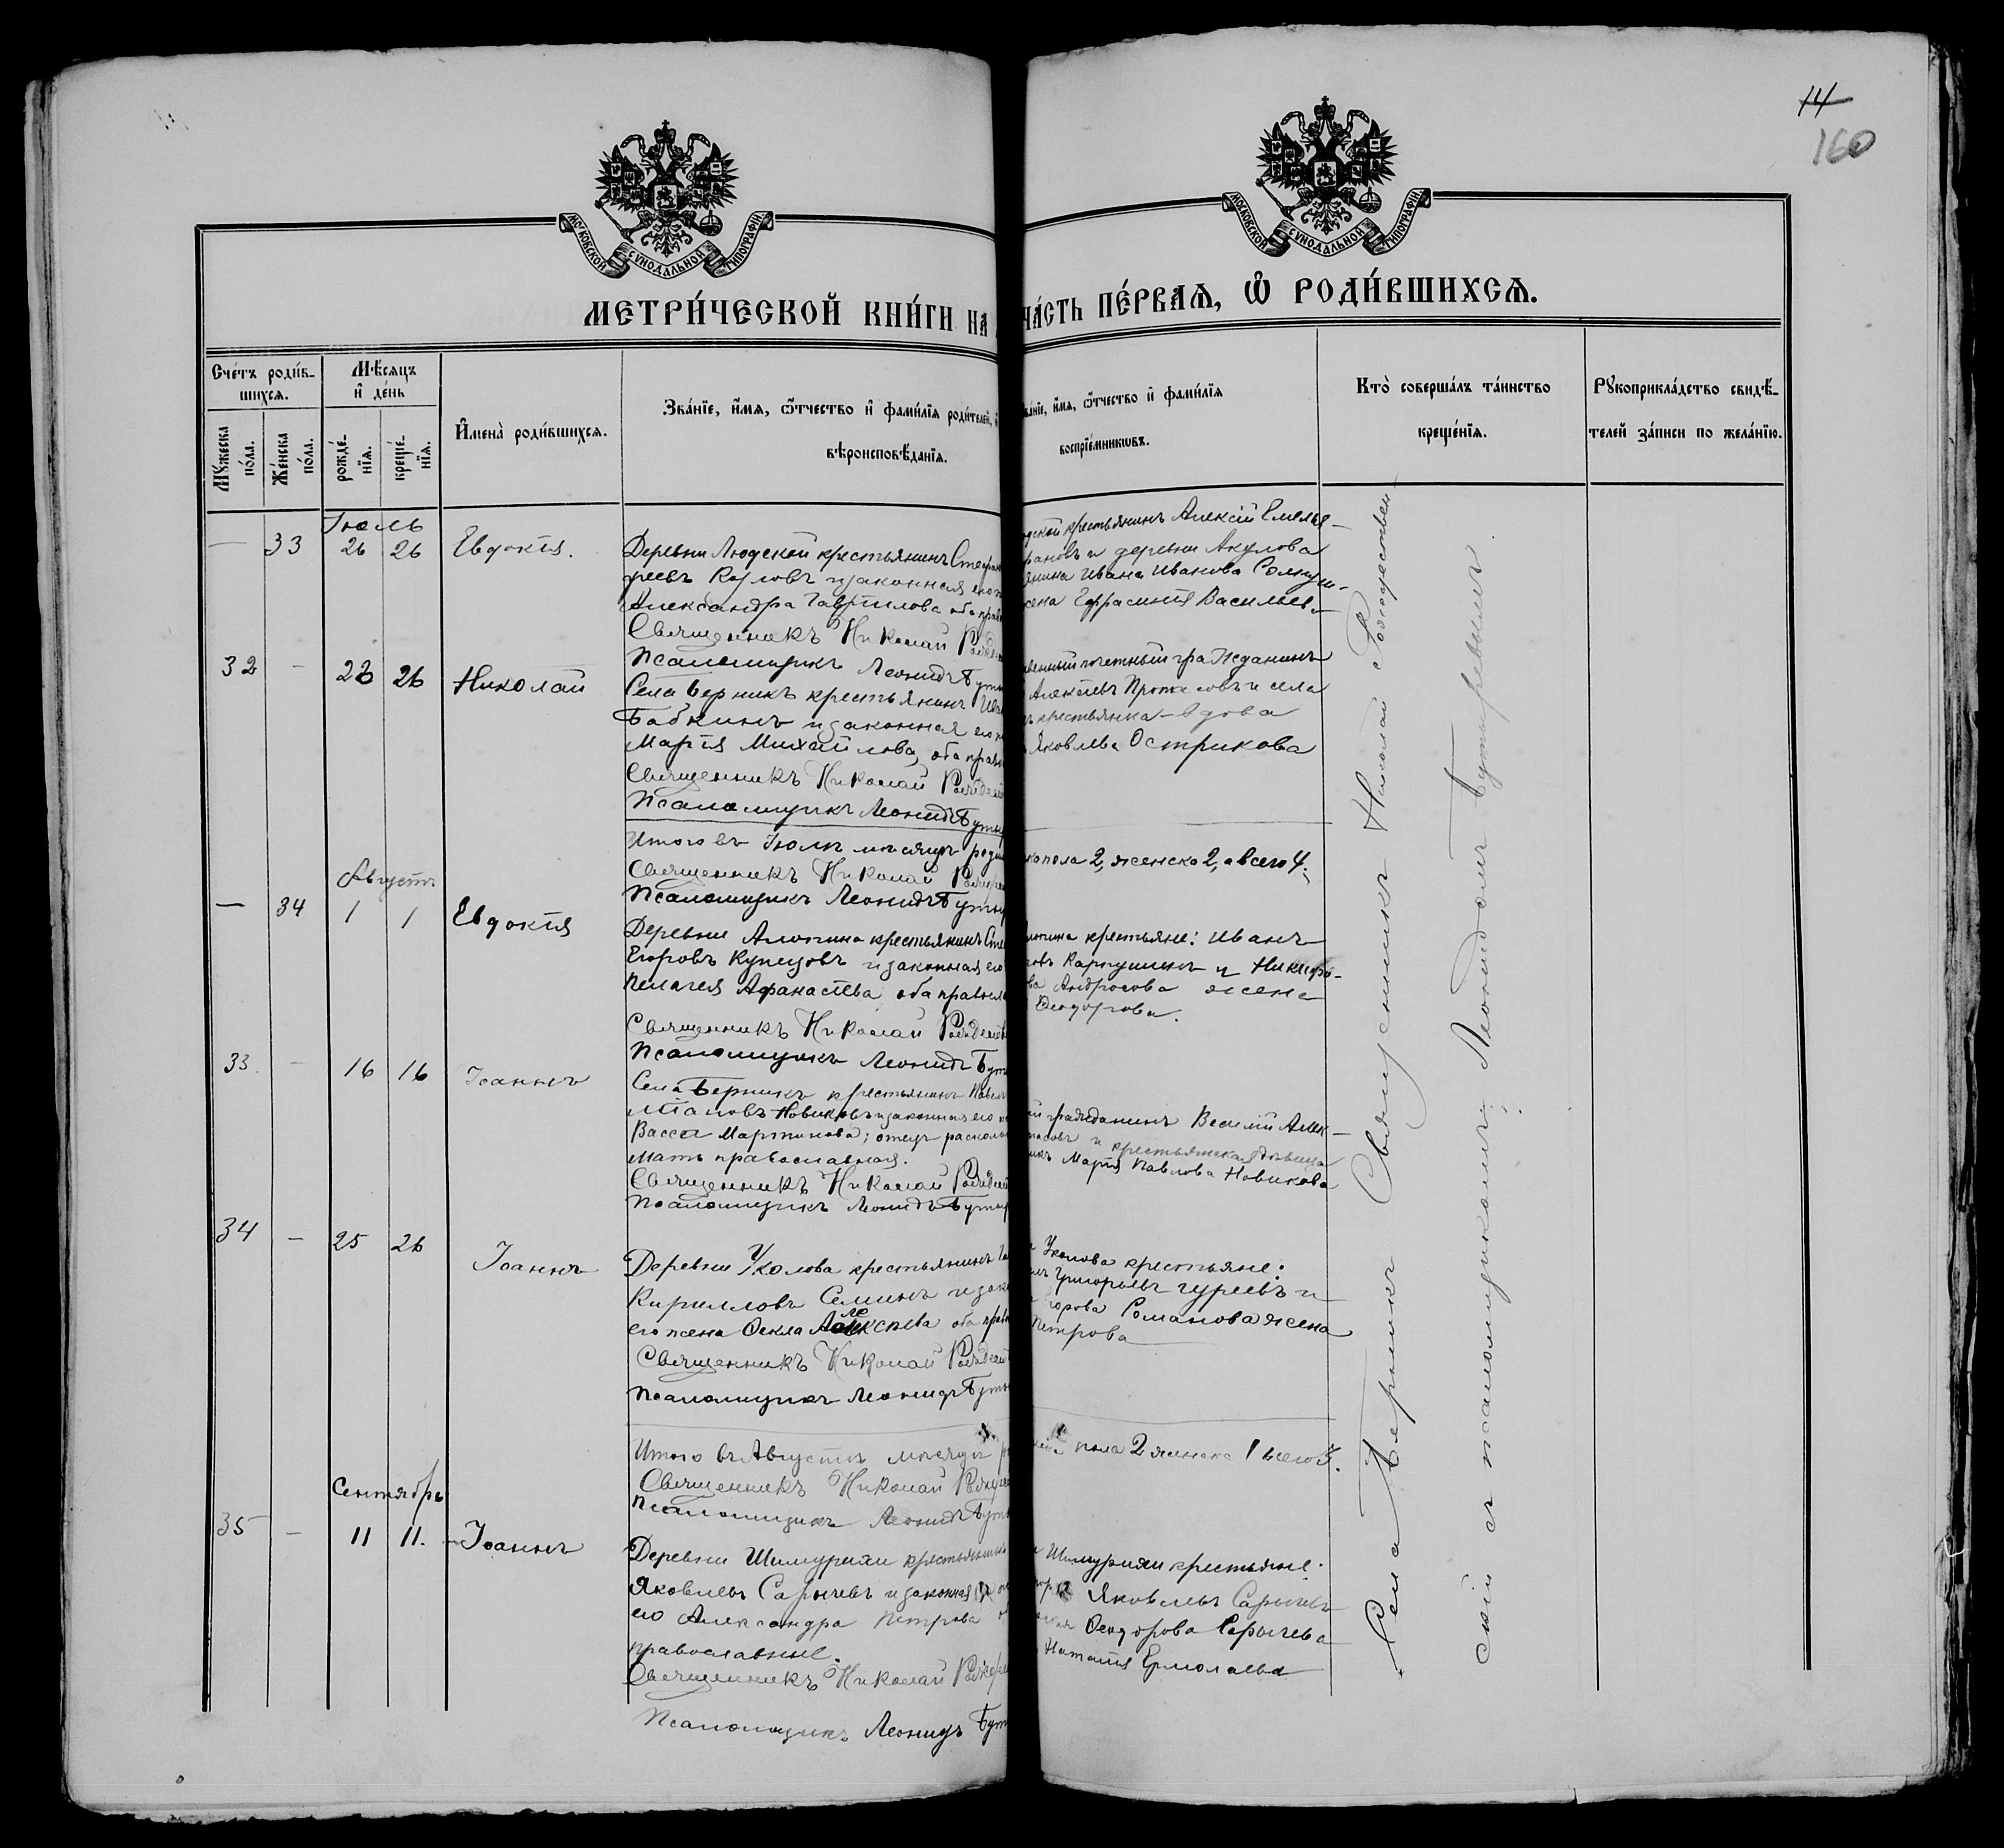 14
160
МОСКОВСКОЙ СѴНОДАЛЬНОЙ ТИПОГРАФІИ
МОСКОВСКОЙ СѴНОДАЛЬНОЙ ТИПОГРАФІИ
МЕТРИ́ЧЕСКОЙ КНИ́ГИ НА
ЧА́СТЬ ПЕ́РВАЯ, Ѽ РОДИ́ВШИХСЯ.
Сче́тъ роди́в-
шихся.
Мѣ́сяцъ
и҆ де́нь
Мꙋ́жеска
по́ла.
Же́нска
по́ла.
рожде́-
нїя.
креще́-
нїя.
И҆мена̀ роди́вшихся.
Зва́нїе, и҆́мя, ѻ҆́тчество и҆ фами́лїя роди́телей,
вѣроисповѣ́данїя.
Зва́нїе, и҆́мя, ѻ҆́тчество и҆ фами́лїя
воспрїе́мникѡвъ.
Кто̀ соверша́лъ та́инство
креще́нїя.
Рꙋкоприкла́дство свидѣ́-
телей за́писи по жела́нїю.
Іюль
— 33 26 26 Евдокія.
Деревни Людской крестьянинъ Стефан
реевъ Козловъ и законная его ж
Александра Гаврилова оба прав
Священникъ Николай Рождест
Псаломщикъ Леонидъ Буты
дской крестьянинъ Алексій Емелья-
рановъ и деревни Акулова
янина Ивана Иванова
жена Ефросинія Васильев.
32 — 26 Николай
Села Берникъ крестьянинъ Ива
Бабкинъ и законная его ж
Марія Михайлова, оба прав
Священникъ Николай Рождест
Псаломщикъ Леонидъ Буты
венный почетный гражданинъ
Алексѣевъ Протасовъ и села
ъ крестьянка-вдова
Яковлева Острикова
Итого въ Іюлѣ мѣсяцѣ роди
Священникъ Николай Рождест
Псаломщикъ Леонидъ Буты
ка пола 2, женска 2, а всего 4.
Августъ
— 34 1 1 Евдокія
Деревни Алютина крестьянинъ Сте
Егоровъ Купцовъ и законная его
Пелагея Афанасіева оба правосл
Священникъ Николай Рождеств
Псаломщикъ Леонидъ Буты
лютина крестьяне: Иванъ
ровъ Карпушинъ и Никифо-
ва Андросова жена
Ѳеодорова.
33. — 16 16 Іоаннъ
Села Берникъ крестьянинъ Павел
Новиковъ и законная его ж
Васса Мартинова; отецъ расколь
мать православная.
Священникъ Николай Рождест
Псаломщикъ Леонидъ Буты
ій гражданинъ Василій Алек-
тасовъ и крестьянская дѣвица
икъ Марія Павлова Новикова
34 — 25 26 Іоаннъ
Деревни Уколова крестьянинъ
Кирилловъ Семинъ и зако
его жена Ѳекла Алексѣева оба прав
Священникъ Николай Рождест
Псаломщикъ Леонидъ Буты
Уколова крестьяне:
Григорьевъ Гуреевъ и
дорова Романова жена
Петрова
Итого въ Августѣ мѣсяцѣ
Священникъ Николай Рождест
Псаломщикъ Леонидъ Буты
пола 2 женска 1 всего 3.
Сентябрь
35 — 11 11. Іоаннъ
Деревни Шишурихи крестьянинъ
Яковлевъ Сарычевъ и законная
его Александра Петрова
православные.
Священникъ Николай Рождест
Псаломщикъ Леонидъ Буты
Шишурихи крестьяне:
Яковлевъ Сарычевъ
Ѳеодорова Сарычева
Наталія Ермолаева
Села Берникъ Священникъ Николай Рождествен-
скій съ псаломщикомъ Леонидомъ Бутыревымъ